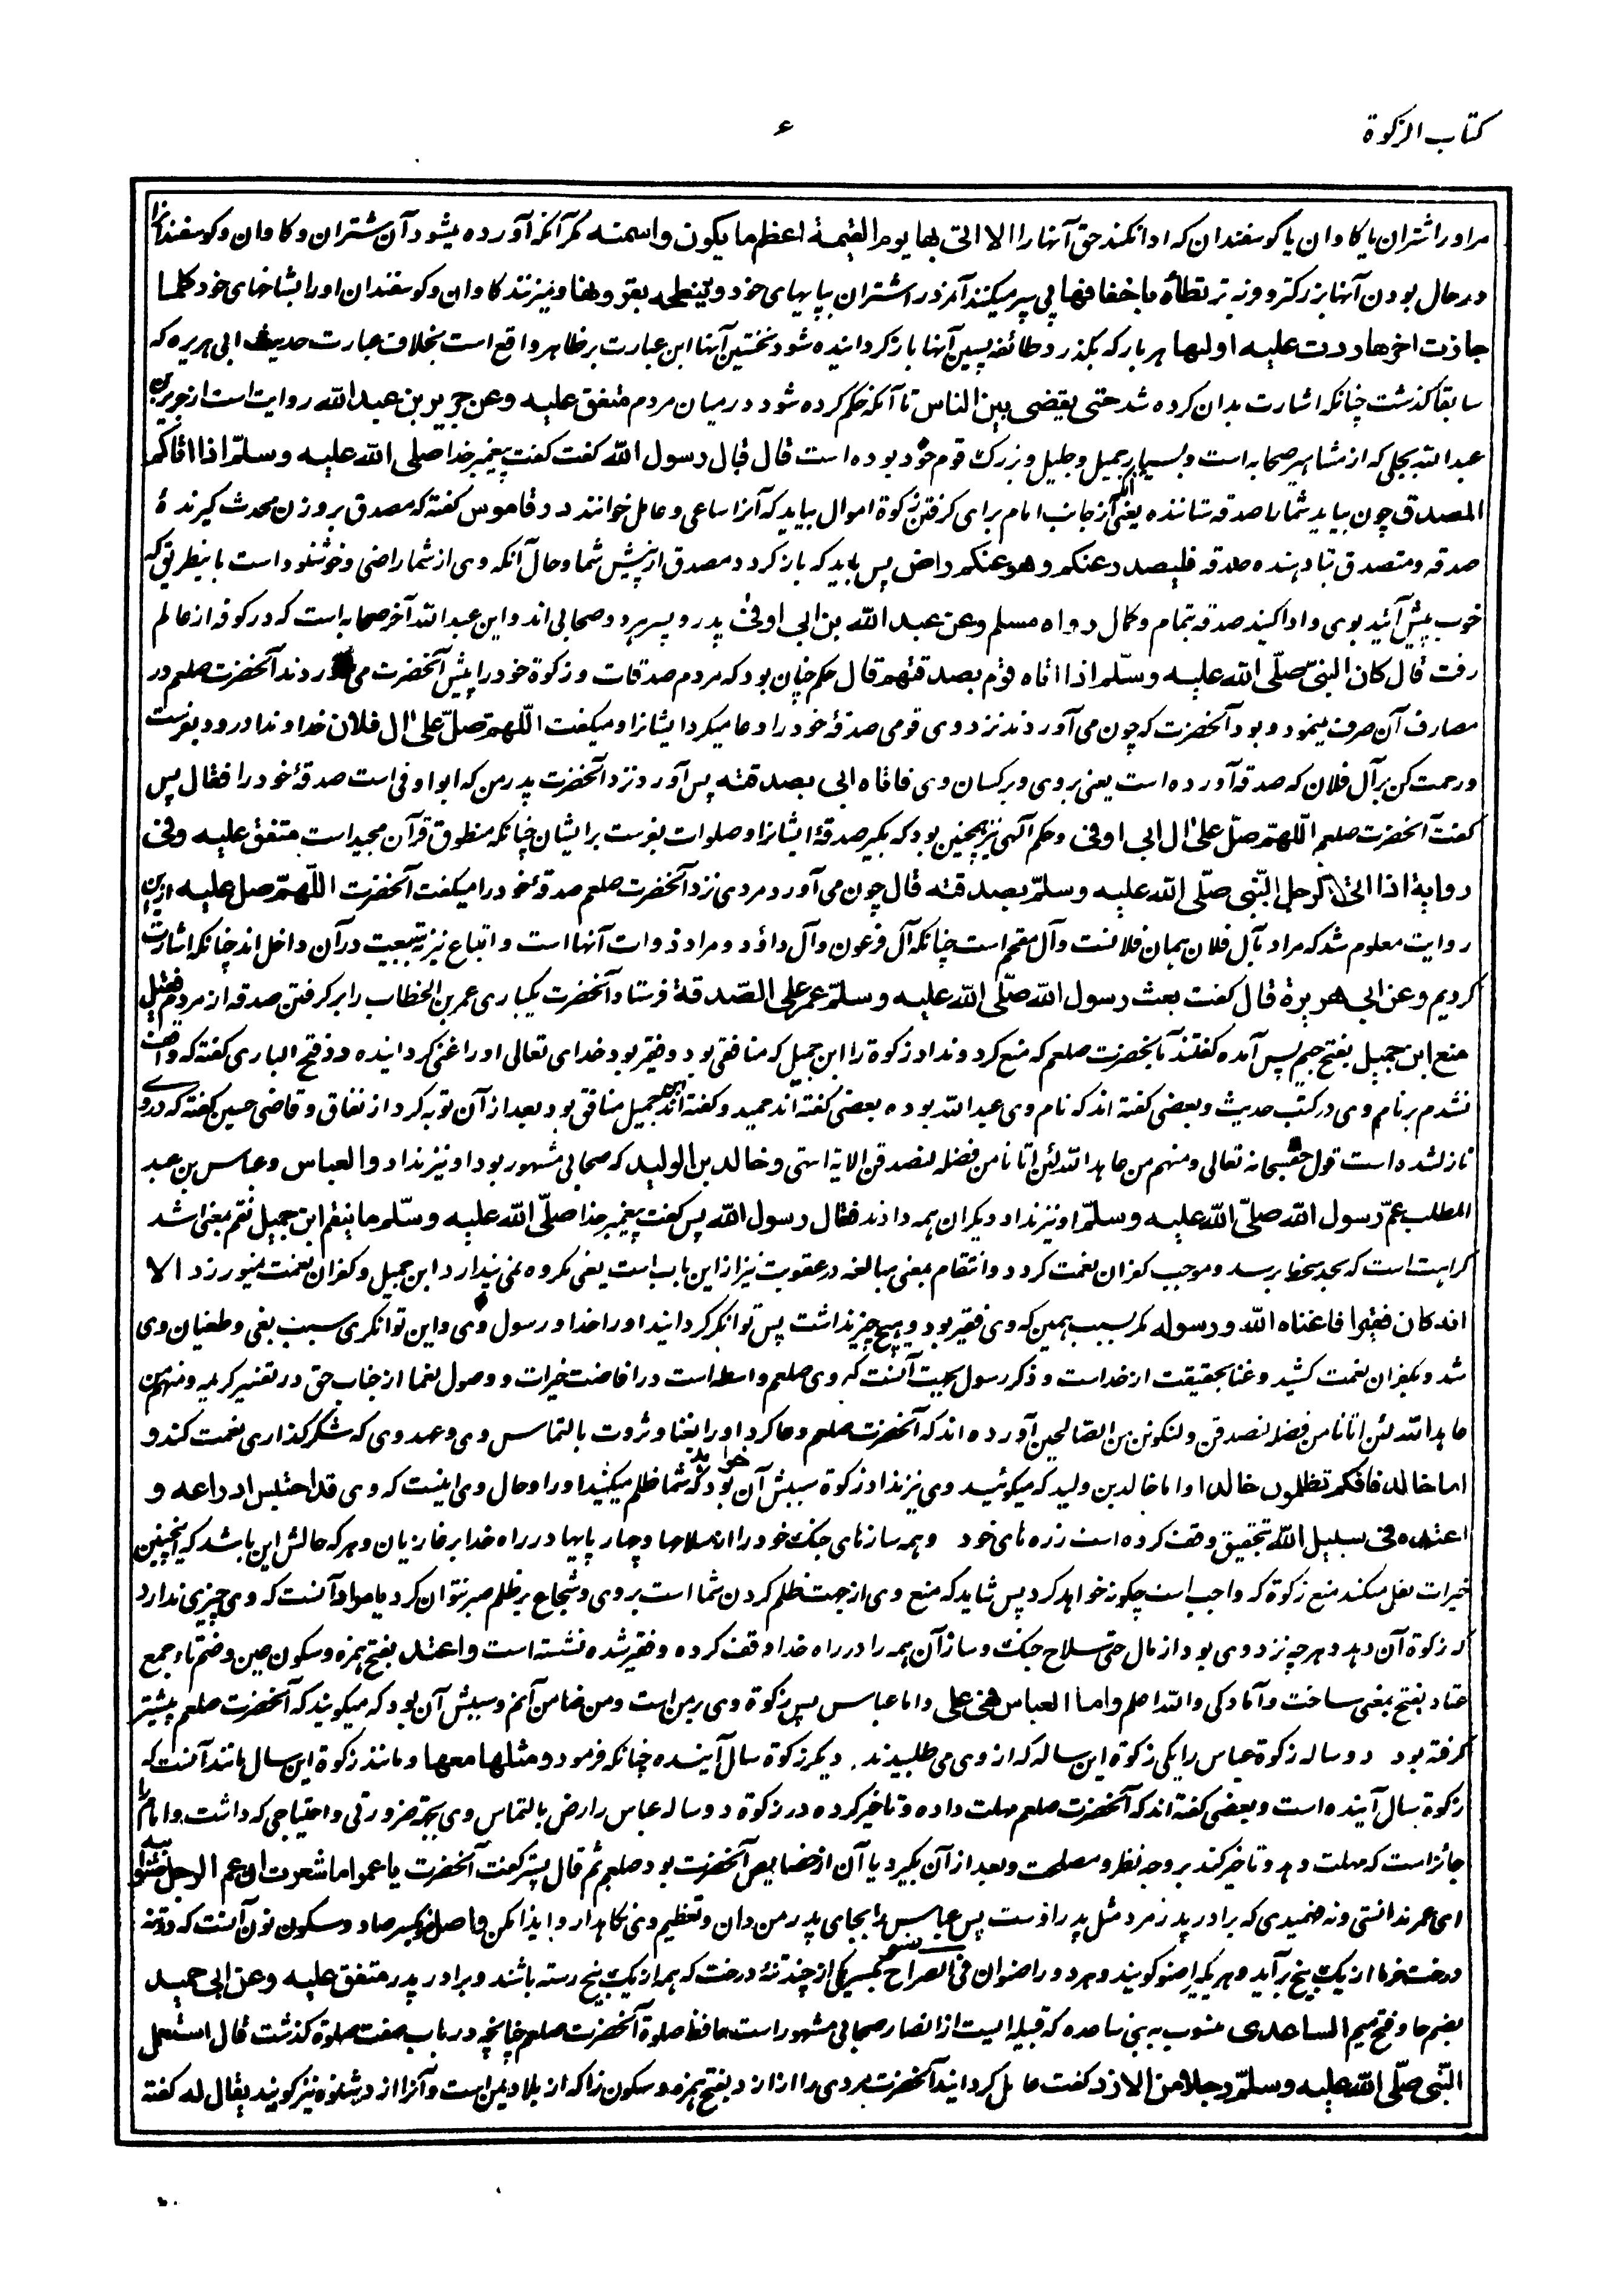 کتاب الزکوة
۶
مراورا شتران یا کاوان یا کوسفندان که ادا نکند حق آنها را الا اتی بها یوم القیمة اعظم ما یکون واسمنه مکر آنکه آورده میشود آن شتران و کاوان و کوسفندان را
در حال بودن آنها بزرکتر و فربه تر تطأه باخفافها پی سپر میکنند آنمرد را شتران بپایهای خود وتنطحه بقرونها ومیزنند کاوان و کوسفندان او را بشاخهای خود کلما
جازت اخرها ردت علیه اولها هر بار که بکذرد طائفه پسین آنها باز کردانیده شود نخستین آنها این عبارت بر ظاهر واقع است بخلاف عبارت حدیث ابی هریره که
سابقا کذشت چنانکه اشارت بدان کرده شد حتی یقضی بین الناس تا آنکه حکم کرده شود در میان مردم متفق علیه وعن جریر بن عبد الله روایت است از جریر بن
عبد الله بجلی که از مشاهیر صحابه است و بسیار جمیل و جلیل و بزرک قوم خود بوده است قال قال رسول الله کفت کفت پیغمبر خدا صلی الله علیه وسلم اذا اتاکم
المصدق چون بیاید شما را صدقه ستاننده یعنی آنکه از جانب امام برای کرفتن زکوة اموال بیاید که آنرا ساعی و عامل خوانند و در قاموس کفته که مصدق بر وزن محدث کیرندۀ
صدقه ومتصدق بتا دهنده صدقه فلیصدر عنکم وهو عنکم راض پس باید که باز کردد مصدق از پیش شما و حال آنکه وی از شما راضی و خوشنود است باینطریق که
خوب پیش آئید بوی و ادا کنید صدقه بتمام و کمال رواه مسلم وعن عبد الله بن ابی اوفی پدر و پسر هر دو صحابی اند و این عبد الله آخر صحابه است که در کوفه از عالم
رفت قال کان النبی صلّی الله علیه وسلّم اذا اتاه قوم بصدقتهم قال حکم چنان بود که مردم صدقات و زکوة خود را پیش آنحضرت می آوردند آنحضرت صلعم در
مصارف آن صرف مینمود و بود آنحضرت که چون می آوردند نزد وی قومی صدقۀ خود را دعا میکرد ایشانرا و میکفت اللّهم صلّ علی ال فلان خداوندا درود بفرست
و رحمت کن بر آل فلان که صدقه آورده است یعنی بر وی و بر کسان وی فاتاه ابی بصدقته پس آورد نزد آنحضرت پدر من که ابو اوفی است صدقۀ خود را فقال پس
کفت آنحضرت صلعم اللّهمّ صلّ علی ال ابی اوفی وحکم آلهی نیز همچنین بود که بکیر صدقۀ ایشانرا و صلوات بفرست بر ایشان چنانکه منطوق قرآن مجید است متفق علیه وفی
روایة اذا اتی الرجل النّبی صلّی الله علیه وسلّم بصدقته قال چون می آورد مردی نزد آنحضرت صلعم صدقۀ خود را میکفت آنحضرت اللّهمّ صل علیه ازین
روایت معلوم شد که مراد بآل فلان همان فلانست وآل مقحم است چنانکه آل فرعون وآل داؤد و مراد ذوات آنها است و اتباع نیز بتبعیت در آن داخل اند چنانکه اشارت
کردیم وعن ابی هریرة قال کفت بعث رسول الله صلّی الله علیه وسلّم عمر علی الصّدقة فرستاد آنحضرت یکباری عمر بن الخطاب را بر کرفتن صدقه از مردم فقیل
منع ابن جمیل بفتح جیم پس آمده کفتند بآنحضرت صلعم که منع کرد و نداد زکوة را ابن جمیل که منافقی بود و فقیر بود خدای تعالی او را غنی کردانیده در فتح الباری کفته که واقف
نشدم بر نام وی در کتب حدیث و بعضی کفته اند که نام وی عبد الله بوده بعضی کفته اند حمید و کفته اند ابن جمیل منافق بود بعد از آن توبه کرد از نفاق و قاضی حسین کفته که در وی
نازلشده است قول حقسبحانه تعالی ومنهم من عاهد الله لئن اتانا من فضله لنصدقن الایة انتهی وخالد بن الولید که صحابی مشهور بود او نیز نداد والعباس وعباس بن عبد
المطلب عمّ رسول الله صلّی الله علیه وسلّم او نیز نداد و دیکران همه دادند فقال رسول الله پس کفت پیغمبر خدا صلّی الله علیه وسلّم ما ینقم ابن جمیل نقم بمعنی اشد
کراهت است که بحد سخط برسد و موجب کفران نعمت کردد و انتقام بمعنی مبالغه در عقوبت نیز از این باب است یعنی مکروه نمی پندارد ابن جمیل و کفران نعمت نمیورزد الا
انه کان فقیرا فاغناه الله ورسوله مکر بسبب همین که وی فقیر بود و هیچ چیز نداشت پس توانکر کردانید او را خدا و رسول وی و این توانکری سبب بغی و طغیان وی
شد و بکفران نعمت کشید و غنا بحقیقت از خدا است و ذکر رسول بجهت آنست که وی صلعم واسطه است در افاضت خیرات و وصول نعما از جناب حق در تفسیر کریمه ومنهم من
عاهد الله لئن اتانا من فضله لنصدقن ولنکونن من الصالحین آورده اند که آنحضرت صلعم دعا کرد او را بغنا و ثروت بالتماس وی و عهد وی که شکر کذاری نعمت کند و
اما خالد فانکم تظلمون خالدا واما خالد بن ولید که میکوئید وی نیز نداد زکوة سببش آن خواهد بود که شما ظلم میکنید او را و حال وی اینست که وی قد احتبس ادراعه و
اعتده فی سبیل الله بتحقیق وقف کرده است زره های خود وهمه سازهای جنک خود را از سلاحها و چارپایها در راه خدا بر غازیان و هر که حالش این باشد که اینچنین
خیرات نفل میکند منع زکوة که واجب است چکونه خواهد کرد پس شاید که منع وی از جهت ظلم کردن شما است بر وی و شجاع بر ظلم صبر نتوان کرد یا مراد آنست که وی چیزی ندارد
که زکوة آن دهد و هر چه نزد وی بود از مال حتی سلاح جنک و ساز آن همه را در راه خدا وقف کرده و فقیر شده نشسته است واعتد بفتح همزه و سکون عین و ضم تا جمع
عتاد بفتح بمعنی ساخت و آمادکی والله اعلم واما العباس فهی علی واما عباس پس زکوة وی بر من است و من ضامن آنم و سببش آن بود که میکویند که آنحضرت صلعم پیشتر
کرفته بود دو ساله زکوة عباس را یکی زکوة این ساله که از وی می طلبیدند. دیکر زکوة سال آینده چنانکه فرمود ومثلها معها و مانند زکوة این سال مانند آنست که
زکوة سال آینده است و بعضی کفته اند که آنحضرت صلعم مهلت داده و تاخیر کرده در زکوة دو ساله عباس را رض بالتماس وی بجهت ضرورتی و احتیاجی که داشت و امام را
جائز است که مهلت دهد و تاخیر کند بر وجه نظر و مصلحت و بعد از آن بکیرد یا آن از خصایص آنحضرت بود صلعم ثم قال پستر کفت آنحضرت یا عمر اما شعرت ان عم الرجل صنو ابیه
ای عمر ندانستی و نه فهمیدی که برادر پدر مرد مثل پدر اوست پس عباس را بجای پدر من دان و تعظیم وی نکاهدار و ایذا مکن و اصل صنو بکسر صاد و سکون نون آنست که دو تنه
درخت خرما از یک بیخ برآید و هر یکی را صنو کویند و هر دو را صنوان فی الصراح صنو بکسر یکی از چند تنۀ درخت که همه از یک بیخ رسته باشند و برادر پدر متفق علیه وعن ابی حمید
بضم حا و فتح میم الساعدی منسوب به بنی ساعده که قبیله ایست از انصار صحابی مشهور است حافظ صلوة آنحضرت صلعم چنانچه در باب صفت صلوة کذشت قال استعمل
النّبی صلّی الله علیه وسلّم رجلا من الازد کفت عامل کردانید آنحضرت مردی را از ازد بفتح همزه و سکون زا که از بلاد یمن است و آنرا ازد شنوه نیز کویند یقال له کفته